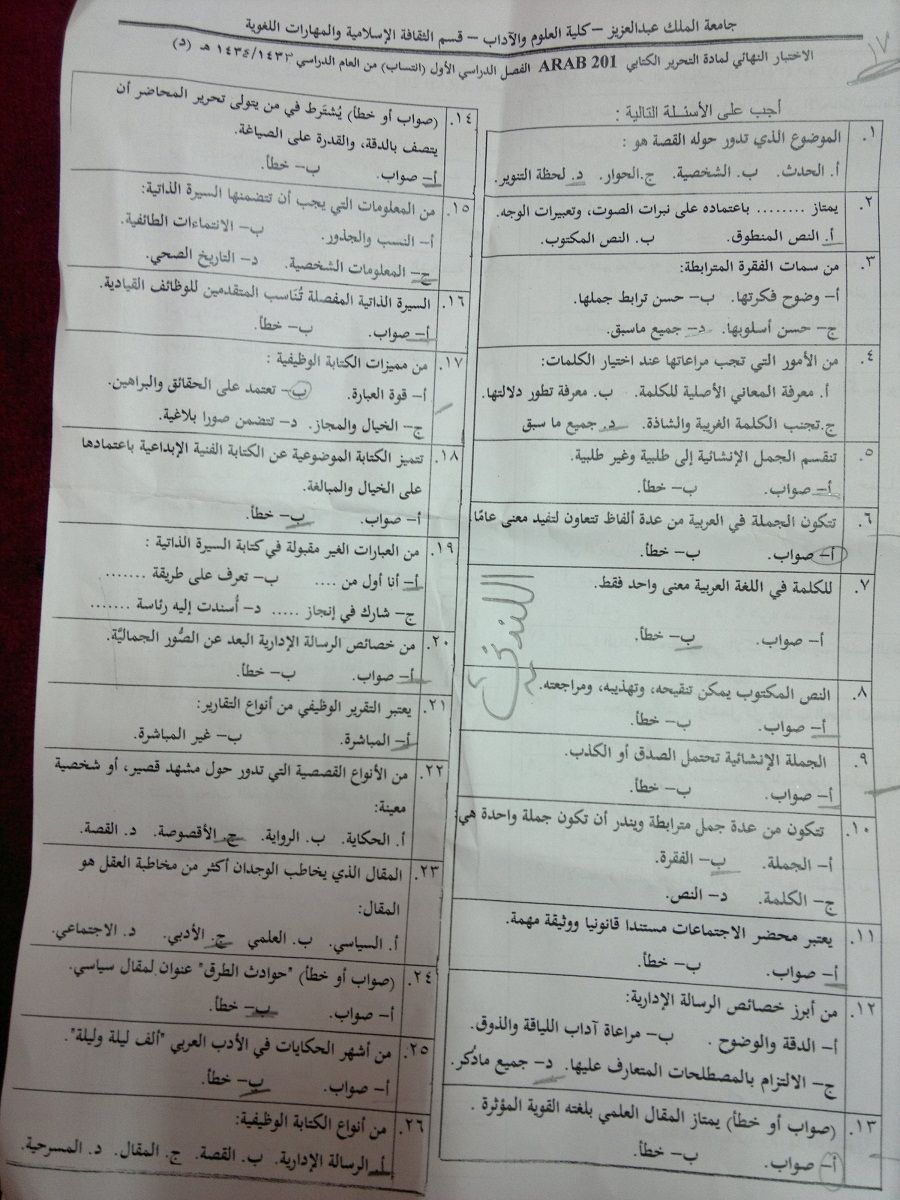 جامعة الملك عبدالعزيز – كلية العلوم والآداب – قسم الثقافة الإسلامية والمهارات اللغوية
الاختبار النهائي لمادة التحرير الكتابي ARAB 201 الفصل الدراسي الأول (انتساب) من العام الدراسي ١٤٣٤/١٤٣٣ هـ (د)
١٧
أجب على الأسئلة التالية :
١. الموضوع الذي تدور حوله القصة هو :
أ. الحدث. ب. الشخصية. ج. الحوار. د. لحظة التنوير.
٢. يمتاز ........ باعتماده على نبرات الصوت، وتعبيرات الوجه.
أ. النص المنطوق. ب. النص المكتوب.
٣. من سمات الفقرة المترابطة:
أ– وضوح فكرتها. ب– حسن ترابط جملها.
ج– حسن أسلوبها. د– جميع ماسبق.
٤. من الأمور التي تجب مراعاتها عند اختيار الكلمات:
أ. معرفة المعاني الأصلية للكلمة. ب. معرفة تطور دلالتها.
ج.تجنب الكلمة الغريبة والشاذة. د. جميع ما سبق
٥. تنقسم الجمل الإنشائية إلى طلبية وغير طلبية.
أ– صواب. ب– خطأ.
٦. تتكون الجملة في العربية من عدة ألفاظ تتعاون لتفيد معنى عامًا.
أ– صواب. ب– خطأ.
٧. للكلمة في اللغة العربية معنى واحد فقط.
أ– صواب. ب– خطأ.
٨. النص المكتوب يمكن تنقيحه، وتهذيبه، ومراجعته.
أ– صواب. ب– خطأ.
٩. الجملة الإنشائية تحتمل الصدق أو الكذب.
أ– صواب. ب– خطأ.
١٠. تتكون من عدة جمل مترابطة ويندر أن تكون جملة واحدة هي:
أ– الجملة. ب– الفقرة.
ج– الكلمة. د– النص.
١١. يعتبر محضر الاجتماعات مستندا قانونيا ووثيقة مهمة.
أ– صواب. ب– خطأ.
١٢. من أبرز خصائص الرسالة الإدارية:
أ– الدقة والوضوح . ب– مراعاة آداب اللياقة والذوق.
ج– الالتزام بالمصطلحات المتعارف عليها. د– جميع ماذُكر.
١٣. (صواب أو خطأ) يمتاز المقال العلمي بلغته القوية المؤثرة .
أ– صواب. ب– خطأ.
١٤. (صواب أو خطأ) يُشتَرط في من يتولى تحرير المحاضر أن
يتصف بالدقة، والقدرة على الصياغة.
أ– صواب. ب– خطأ.
١٥. من المعلومات التي يجب أن تتضمنها السيرة الذاتية:
أ– النسب والجذور. ب– الانتماءات الطائفية.
ج– المعلومات الشخصية. د– التاريخ الصحي.
١٦. السيرة الذاتية المفصلة تُنَاسب المتقدمين للوظائف القيادية.
أ– صواب. ب– خطأ.
١٧. من مميزات الكتابة الوظيفية :
أ– قوة العبارة. ب– تعتمد على الحقائق والبراهين.
ج– الخيال والمجاز. د– تتضمن صورا بلاغية.
١٨. تتميز الكتابة الموضوعية عن الكتابة الفنية الإبداعية باعتمادها
على الخيال والمبالغة.
أ– صواب. ب– خطأ.
١٩. من العبارات الغير مقبولة في كتابة السيرة الذاتية :
أ– أنا أول من .... ب– تعرف على طريقة .......
ج– شارك في إنجاز ..... د– أُسندت إليه رئاسة .......
٢٠. من خصائص الرسالة الإدارية البعد عن الصُّور الجماليَّة.
أ– صواب. ب– خطأ.
٢١. يعتبر التقرير الوظيفي من أنواع التقارير:
أ– المباشرة. ب– غير المباشرة.
٢٢. من الأنواع القصصية التي تدور حول مشهد قصير، أو شخصية
معينة:
أ. الحكاية. ب. الرواية. ج. الأقصوصة. د. القصة.
٢٣. المقال الذي يخاطب الوجدان أكثر من مخاطبة العقل هو
المقال:
أ. السياسي. ب. العلمي ج. الأدبي. د. الاجتماعي.
٢٤. (صواب أو خطأ) "حوادث الطرق" عنوان لمقال سياسي.
أ– صواب. ب– خطأ.
٢٥. من أشهر الحكايات في الأدب العربي "ألف ليلة وليلة".
أ– صواب. ب– خطأ.
٢٦. من أنواع الكتابة الوظيفية:
أ– الرسالة الإدارية. ب. القصة. ج. المقال. د. المسرحية.